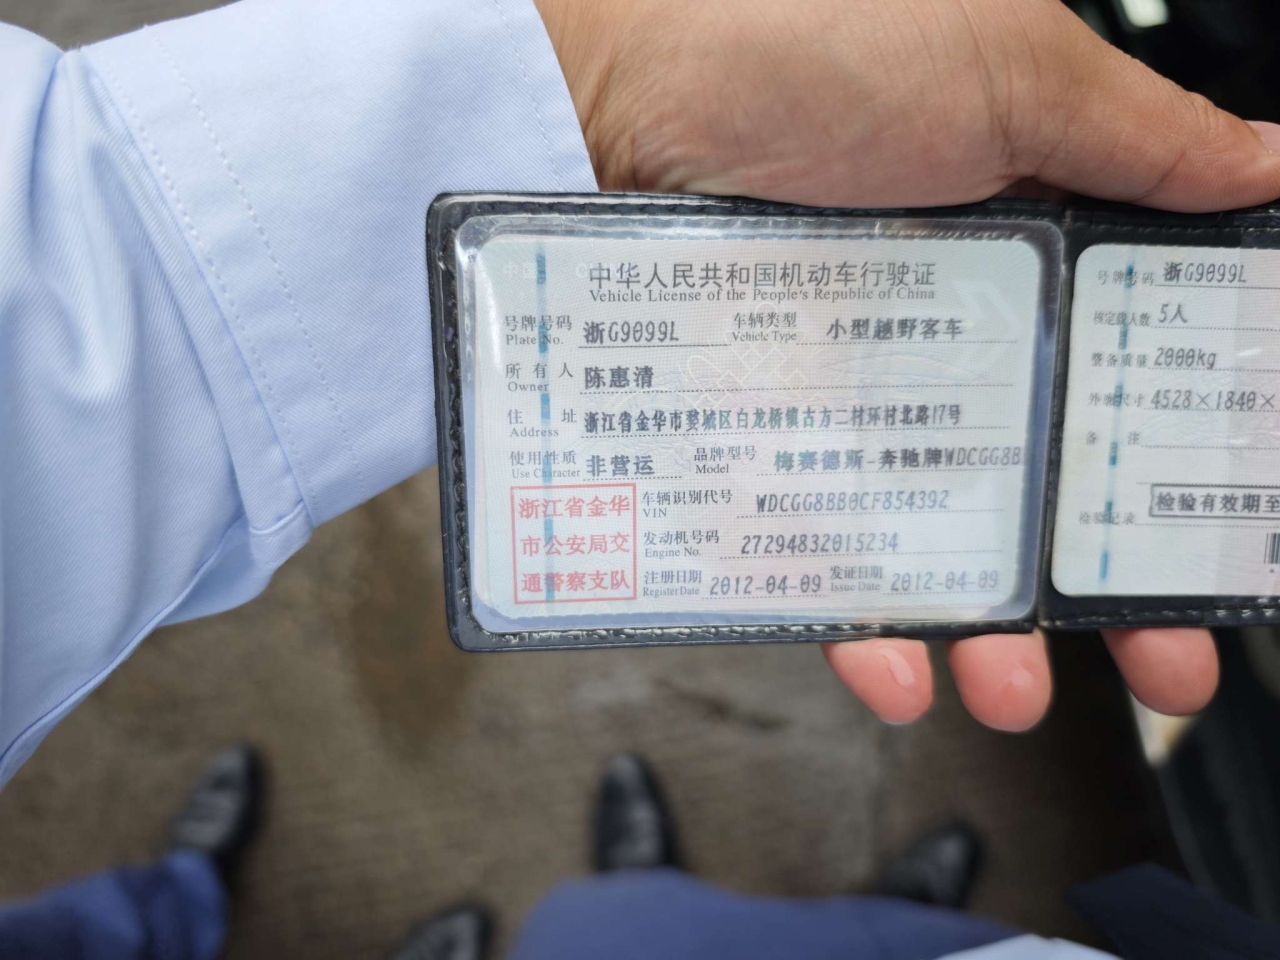 中华人民共和国机动车行驶证
Vehicle License of the People's Republic of China
号牌号码 浙G9099L 车辆类型 小型越野客车
Plate No. Vehicle Type
所有人 陈惠清
Owner
住址 浙江省金华市婺城区白龙桥镇古方二村环村北路17号
Address
使用性质 非营运 品牌型号 梅赛德斯-奔驰牌WDCGG8B
Use Character Model
浙江省金华
市公安局交
通警察支队
车辆识别代号 WDCGG8BB0CF854392
VIN
发动机号码 27294832015234
Engine No.
注册日期 2012-04-09 发证日期 2012-04-09
Register Date Issue Date
号牌号码 浙G9099L
核定载人数 5人
整备质量 2000kg
外廓尺寸 4528×1840×
备注
检验有效期至
检验记录